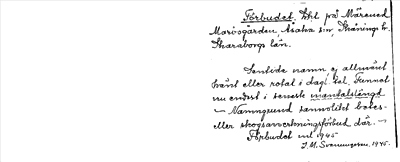 Förbudet, lht på Märened
Marösgården, Åsaka sn, Skånings h.
Skaraborgs län.
Sentida namn ej allmänt
känt eller rotat i dagl. tal. Funnet
nu endast i senaste mantalslängd
– Namngrund sannolikt betes-
eller skogsavverkningsförbud där. –
Förbudet ml 1945
J. M. Svenungsson, 1945.